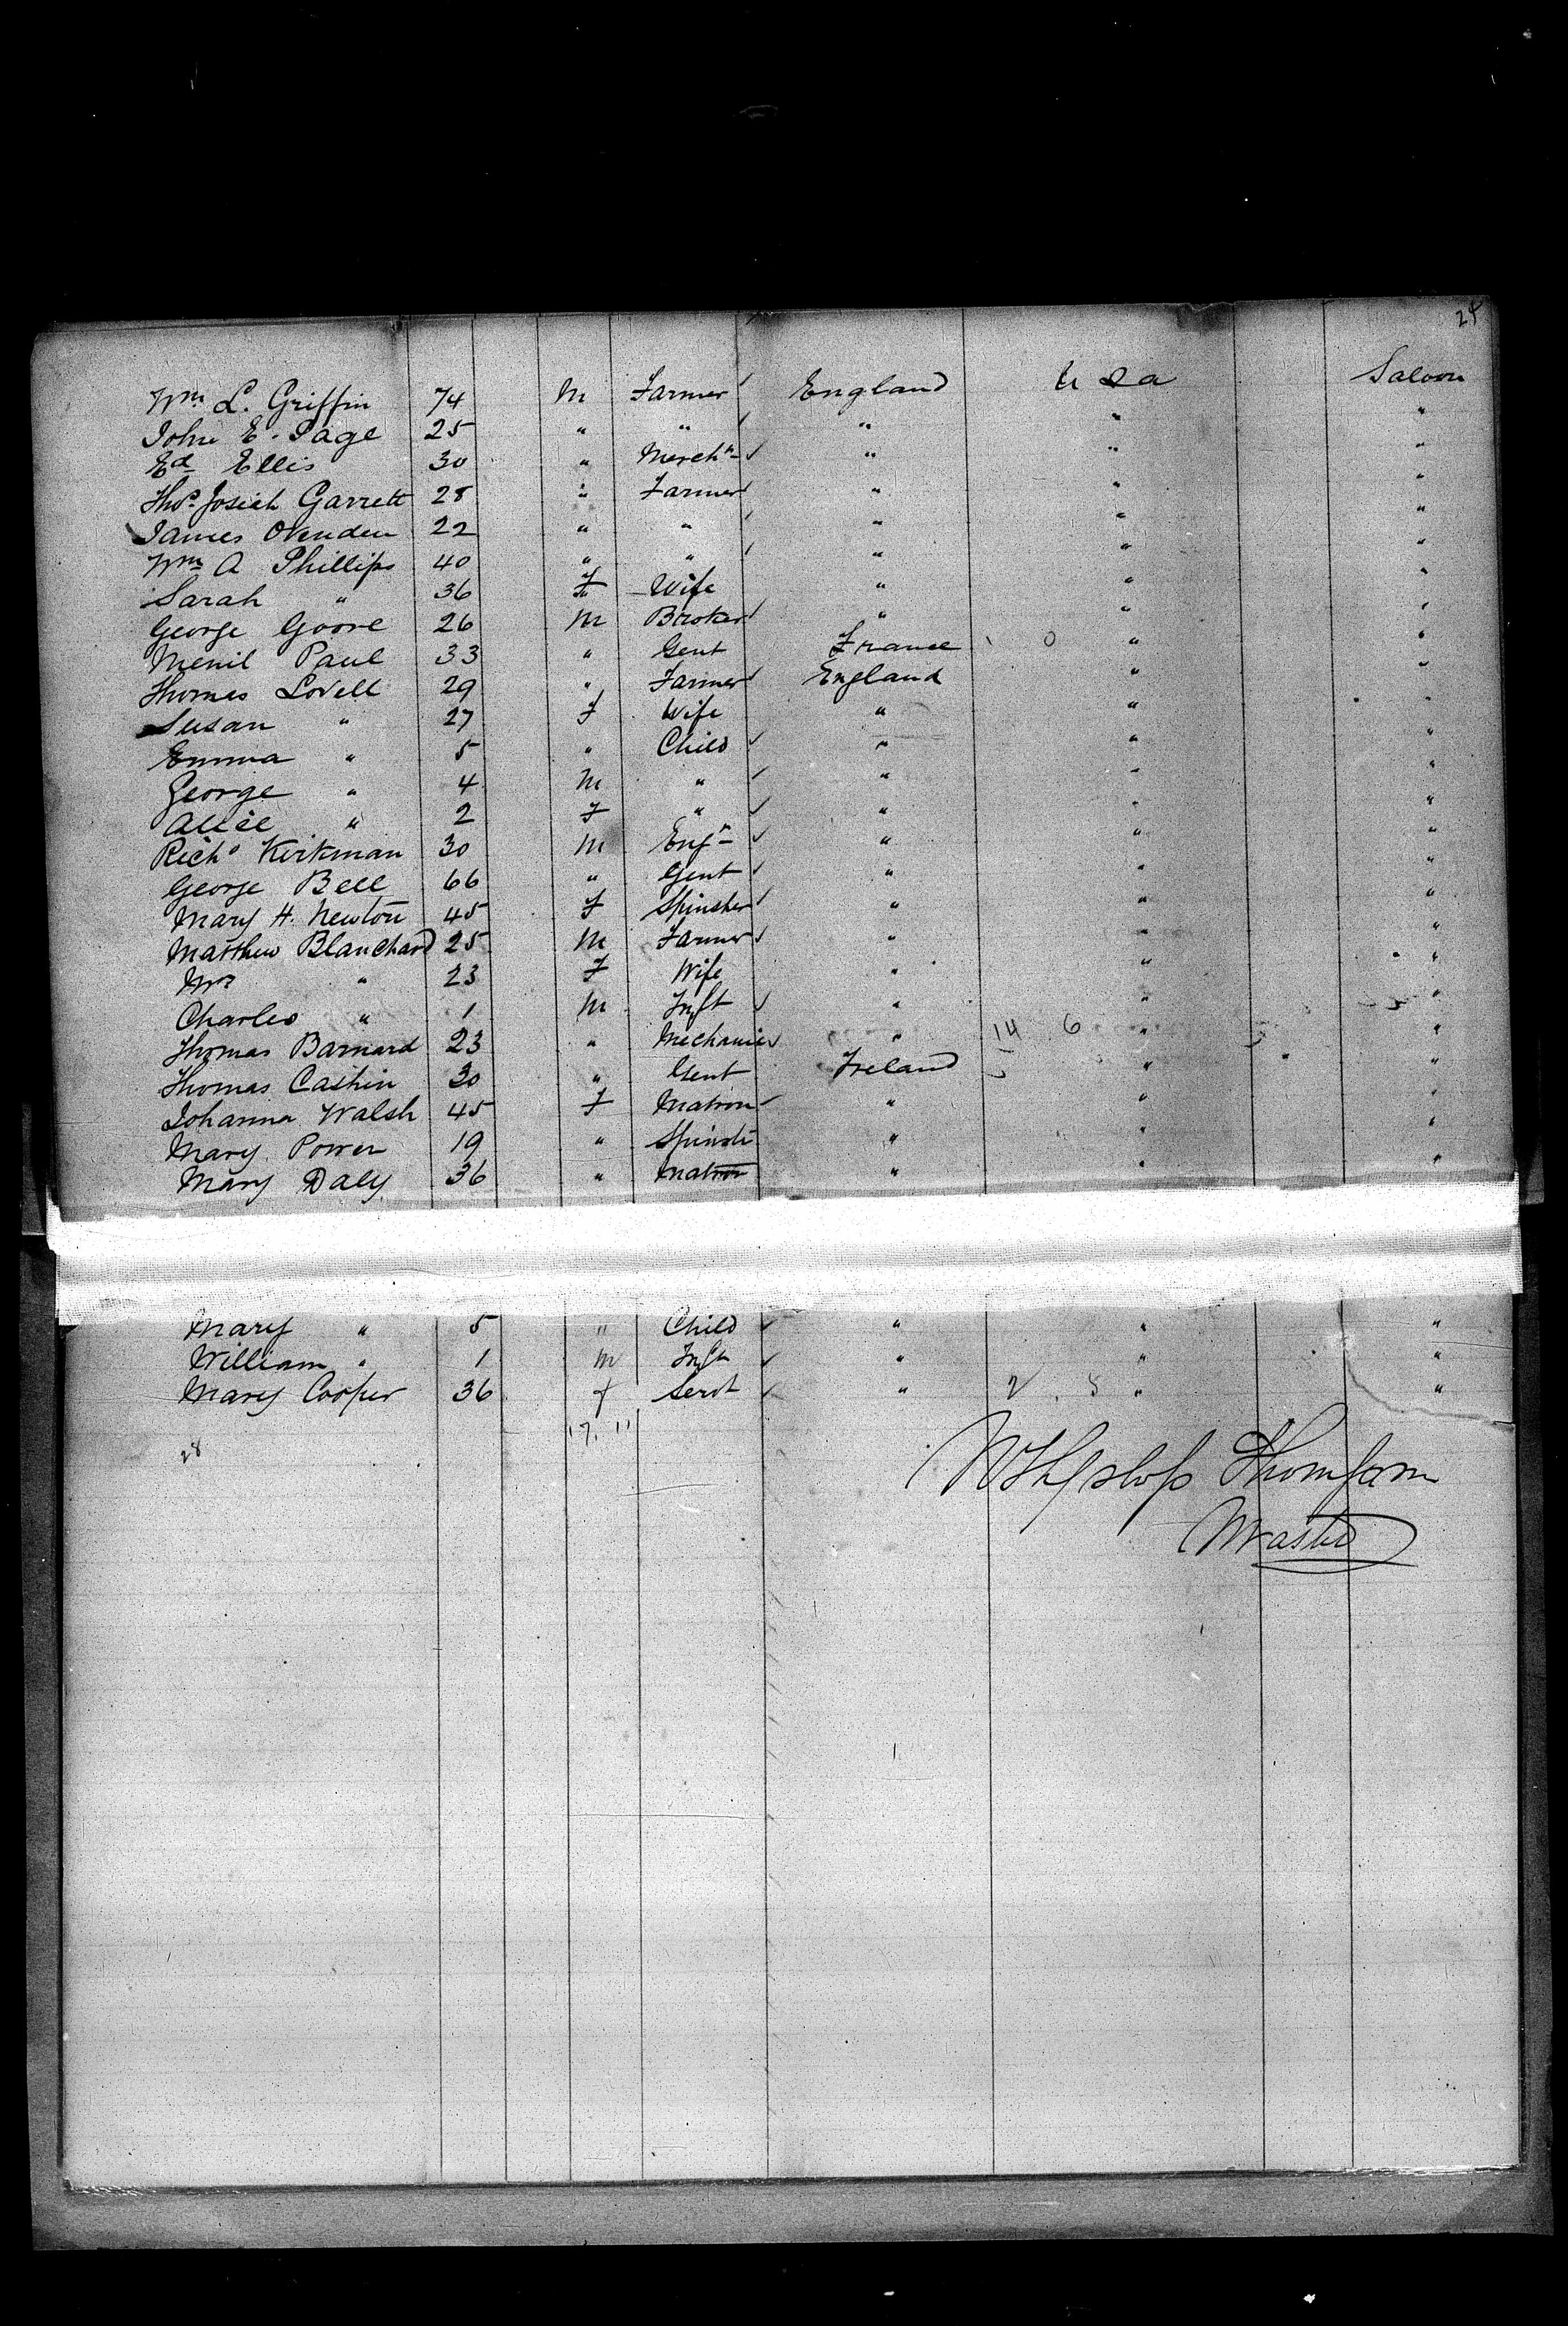 24
Wm L. Griffin 74 M Farmer England U S a Saloon
John E. Page 25 " " " " "
Ed Ellis 30 " Merch " " "
Thos Josiah Garrett 28 " Farmer " " "
James Ovenden 22 " " " " "
Wm A Phillips 40 " " " " "
Sarah " 36 F Wife " " "
George Goore 26 M Broker " " "
Menil Paul 33 " Gent France 1 0 " "
Thomas Lovell 29 " Farmer England " "
Susan " 27 F Wife " " "
Emma " 5 " Child " " "
George " 4 M " " " "
Alice " 2 F " " " "
Richd Kirkman 30 M Engr " " "
George Bell 66 " Gent " " "
Mary H. Newton 45 F Spinster " " "
Matthew Blanchard 25 M Farmer " " "
Mrs " 23 F Wife " " "
Charles " 1 M Inft " " "
Thomas Barnard 23 " Mechanic " 14 6 " "
Thomas Cashin 30 " Gent Ireland " "
Johanna Walsh 45 F Matron " " "
Mary Power 19 " Spinst " " "
Mary Daly 36 " Matron " " "
Mary " 5 " Child " " "
William " 1 M Inft " " "
Mary Cooper 36 f Servt " 2 5 " "
17. 11
28
W Hyslop Thomson
Master